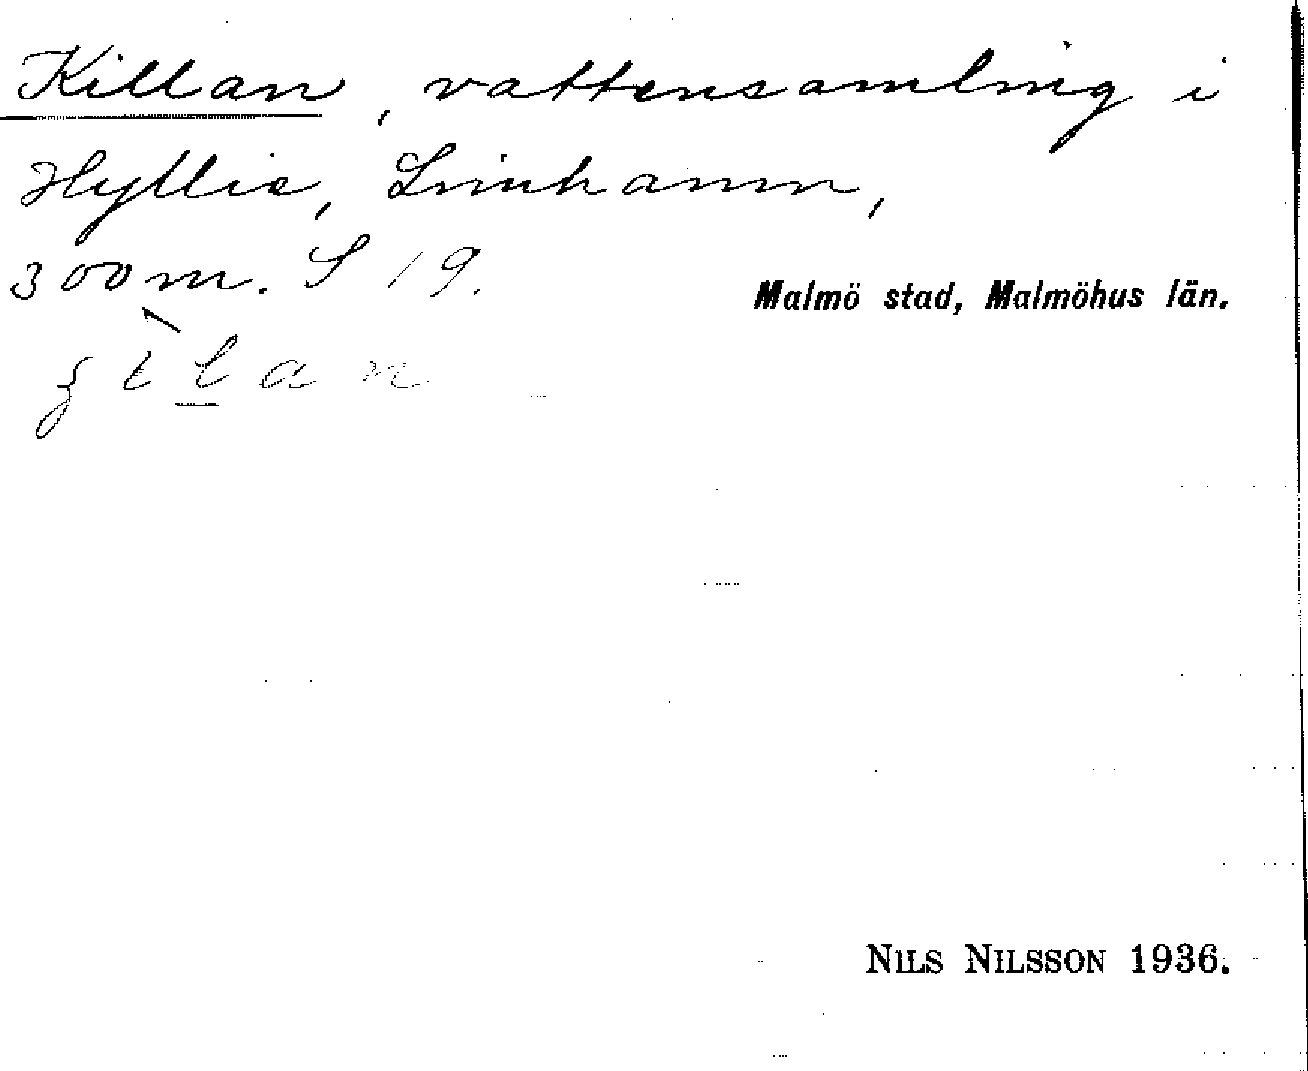 Killan, vattensamling i
Hyllie, Limhamn,
300 m. S 19.
Malmö stad, Malmöhus län.
NILS NILSSON 1936.